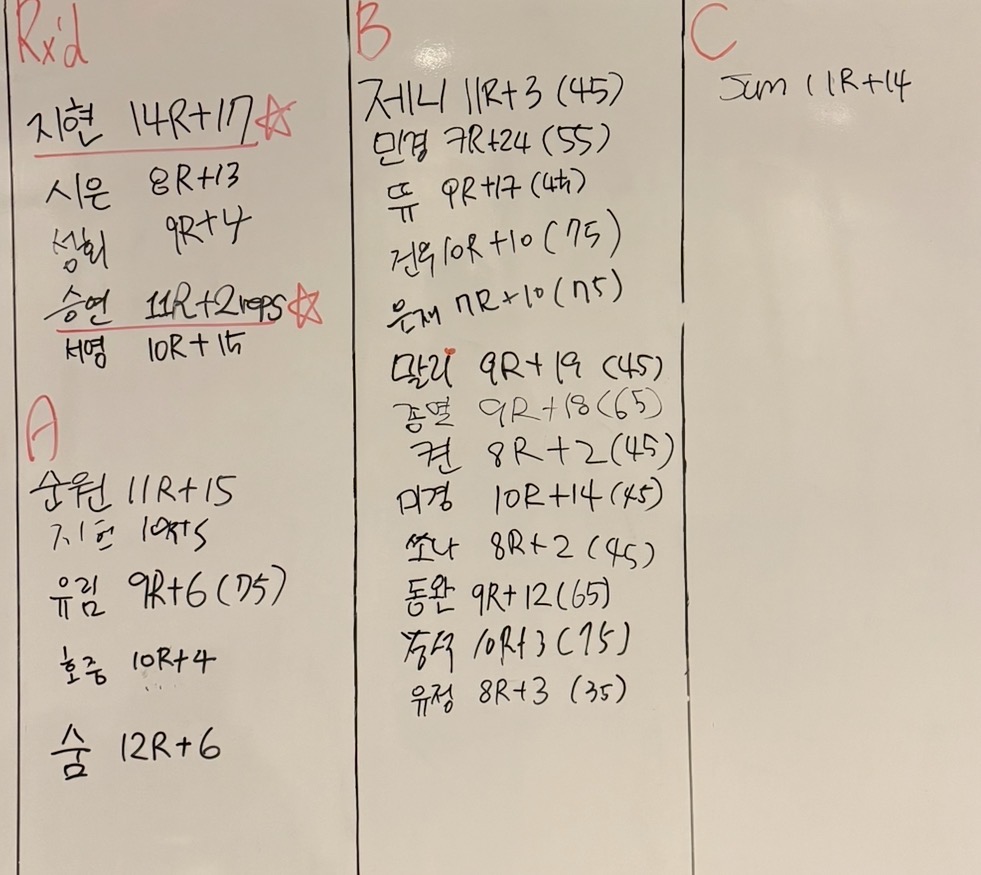 Rx'd
지현 14R+17
시은 8R+13
성회 9R+4
승연 11R+2reps
서영 10R+15
A
순원 11R+15
지현 10R+5
유림 9R+6 (75)
호중 10R+4
숨 12R+6
B
제니 11R+3 (45)
민경 7R+24 (55)
뜌 9R+17 (45)
건우 10R+10 (75)
은재 7R+10 (75)
말리 9R+19 (45)
종열 9R+18 (65)
켠 8R+2 (45)
미경 10R+14 (45)
쏘나 8R+2 (45)
동완 9R+12 (65)
10R+3 (75)
유정 8R+3 (35)
C
11R+14